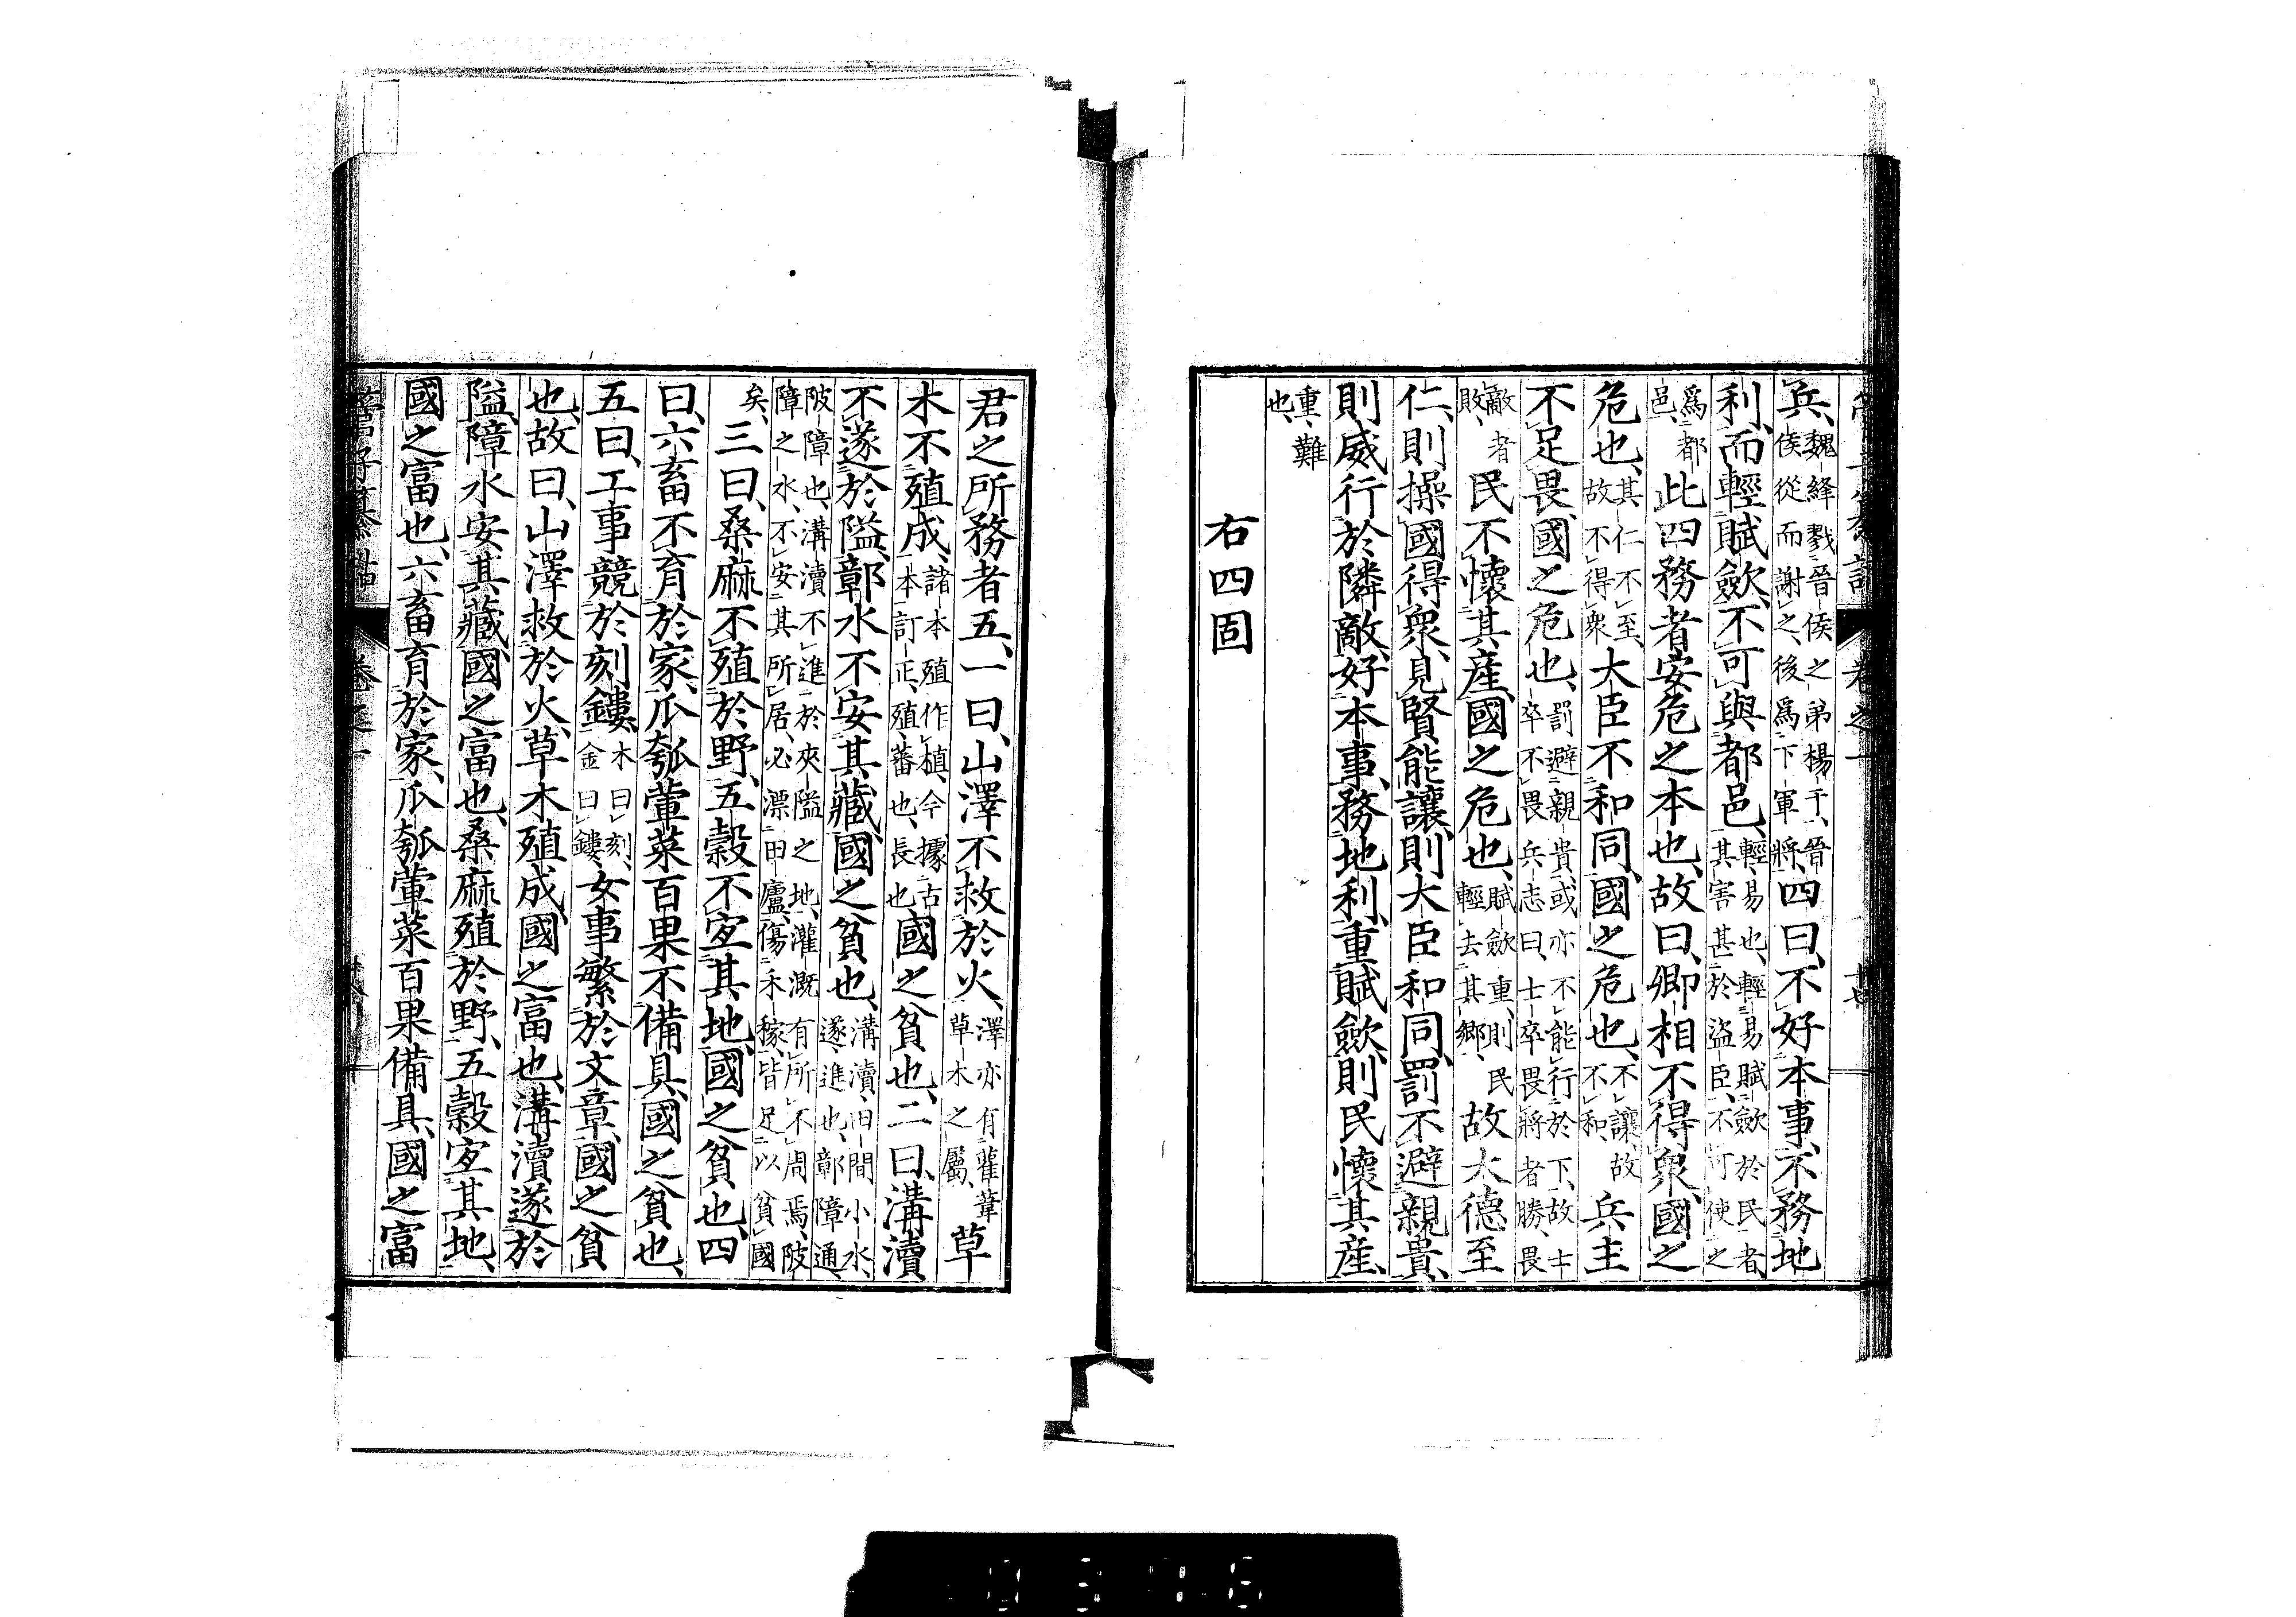 兵、魏絳戮晉侯之弟楊于、晉侯從而謝之、後爲下軍將、四曰、不好本事、不務地
利、而輕賦歛、不可與都邑、輕、易也、輕易賦歛於民者、其害甚於盜臣、不可使之
爲都邑、此四務者安危之本也、故曰、卿相不得衆、國之
危也、其仁不至、故不得衆大臣不和同、國之危也、不讓故不和、兵主
不足畏、國之危也、罰避親貴、或亦不能行於下、故士卒不畏兵志曰、士卒畏將者勝、畏
敵者敗、民不懷其產、國之危也、賦歛重、則民輕去其鄉、故大德至
仁、則操國得衆、見賢能讓、則大臣和同、罰不避親貴、
則威行於隣敵、好本事、務地利、重賦歛、則民懷其產、
重、難也、
右四固
君之所務者五、一曰、山澤不救於火、澤亦有雚葦草木之屬、草
木不殖成、諸本殖作植、今據古本訂正、殖、蕃也、長也國之貧也、二曰、溝瀆
不遂於隘、鄣水不安其藏、國之貧也、溝瀆、田間小水、遂、進也、鄣障通、
陂障也、溝瀆不進於夾隘之地、灌漑有所不周焉、陂障之水、不安其所居、必漂田廬、傷禾稼、皆足以貧國
矣、三曰、桑麻不殖於野、五穀不宐其地、國之貧也、四
曰、六畜不育於家、瓜瓠葷菜百果不備具、國之貧也、
五曰、工事競於刻鏤、木曰刻、金曰鏤、女事繁於文章、國之貧
也、故曰、山澤救於火、草木殖成、國之富也、溝瀆遂於
隘、障水安其藏、國之富也、桑麻殖於野、五穀宐其地、
國之富也、六畜育於家、瓜瓠葷菜百果備具、國之富
卷之一